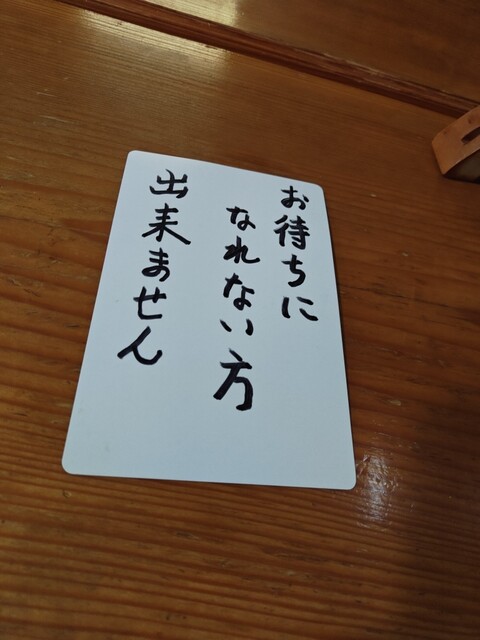 お待ちに
なれない方
出来ません